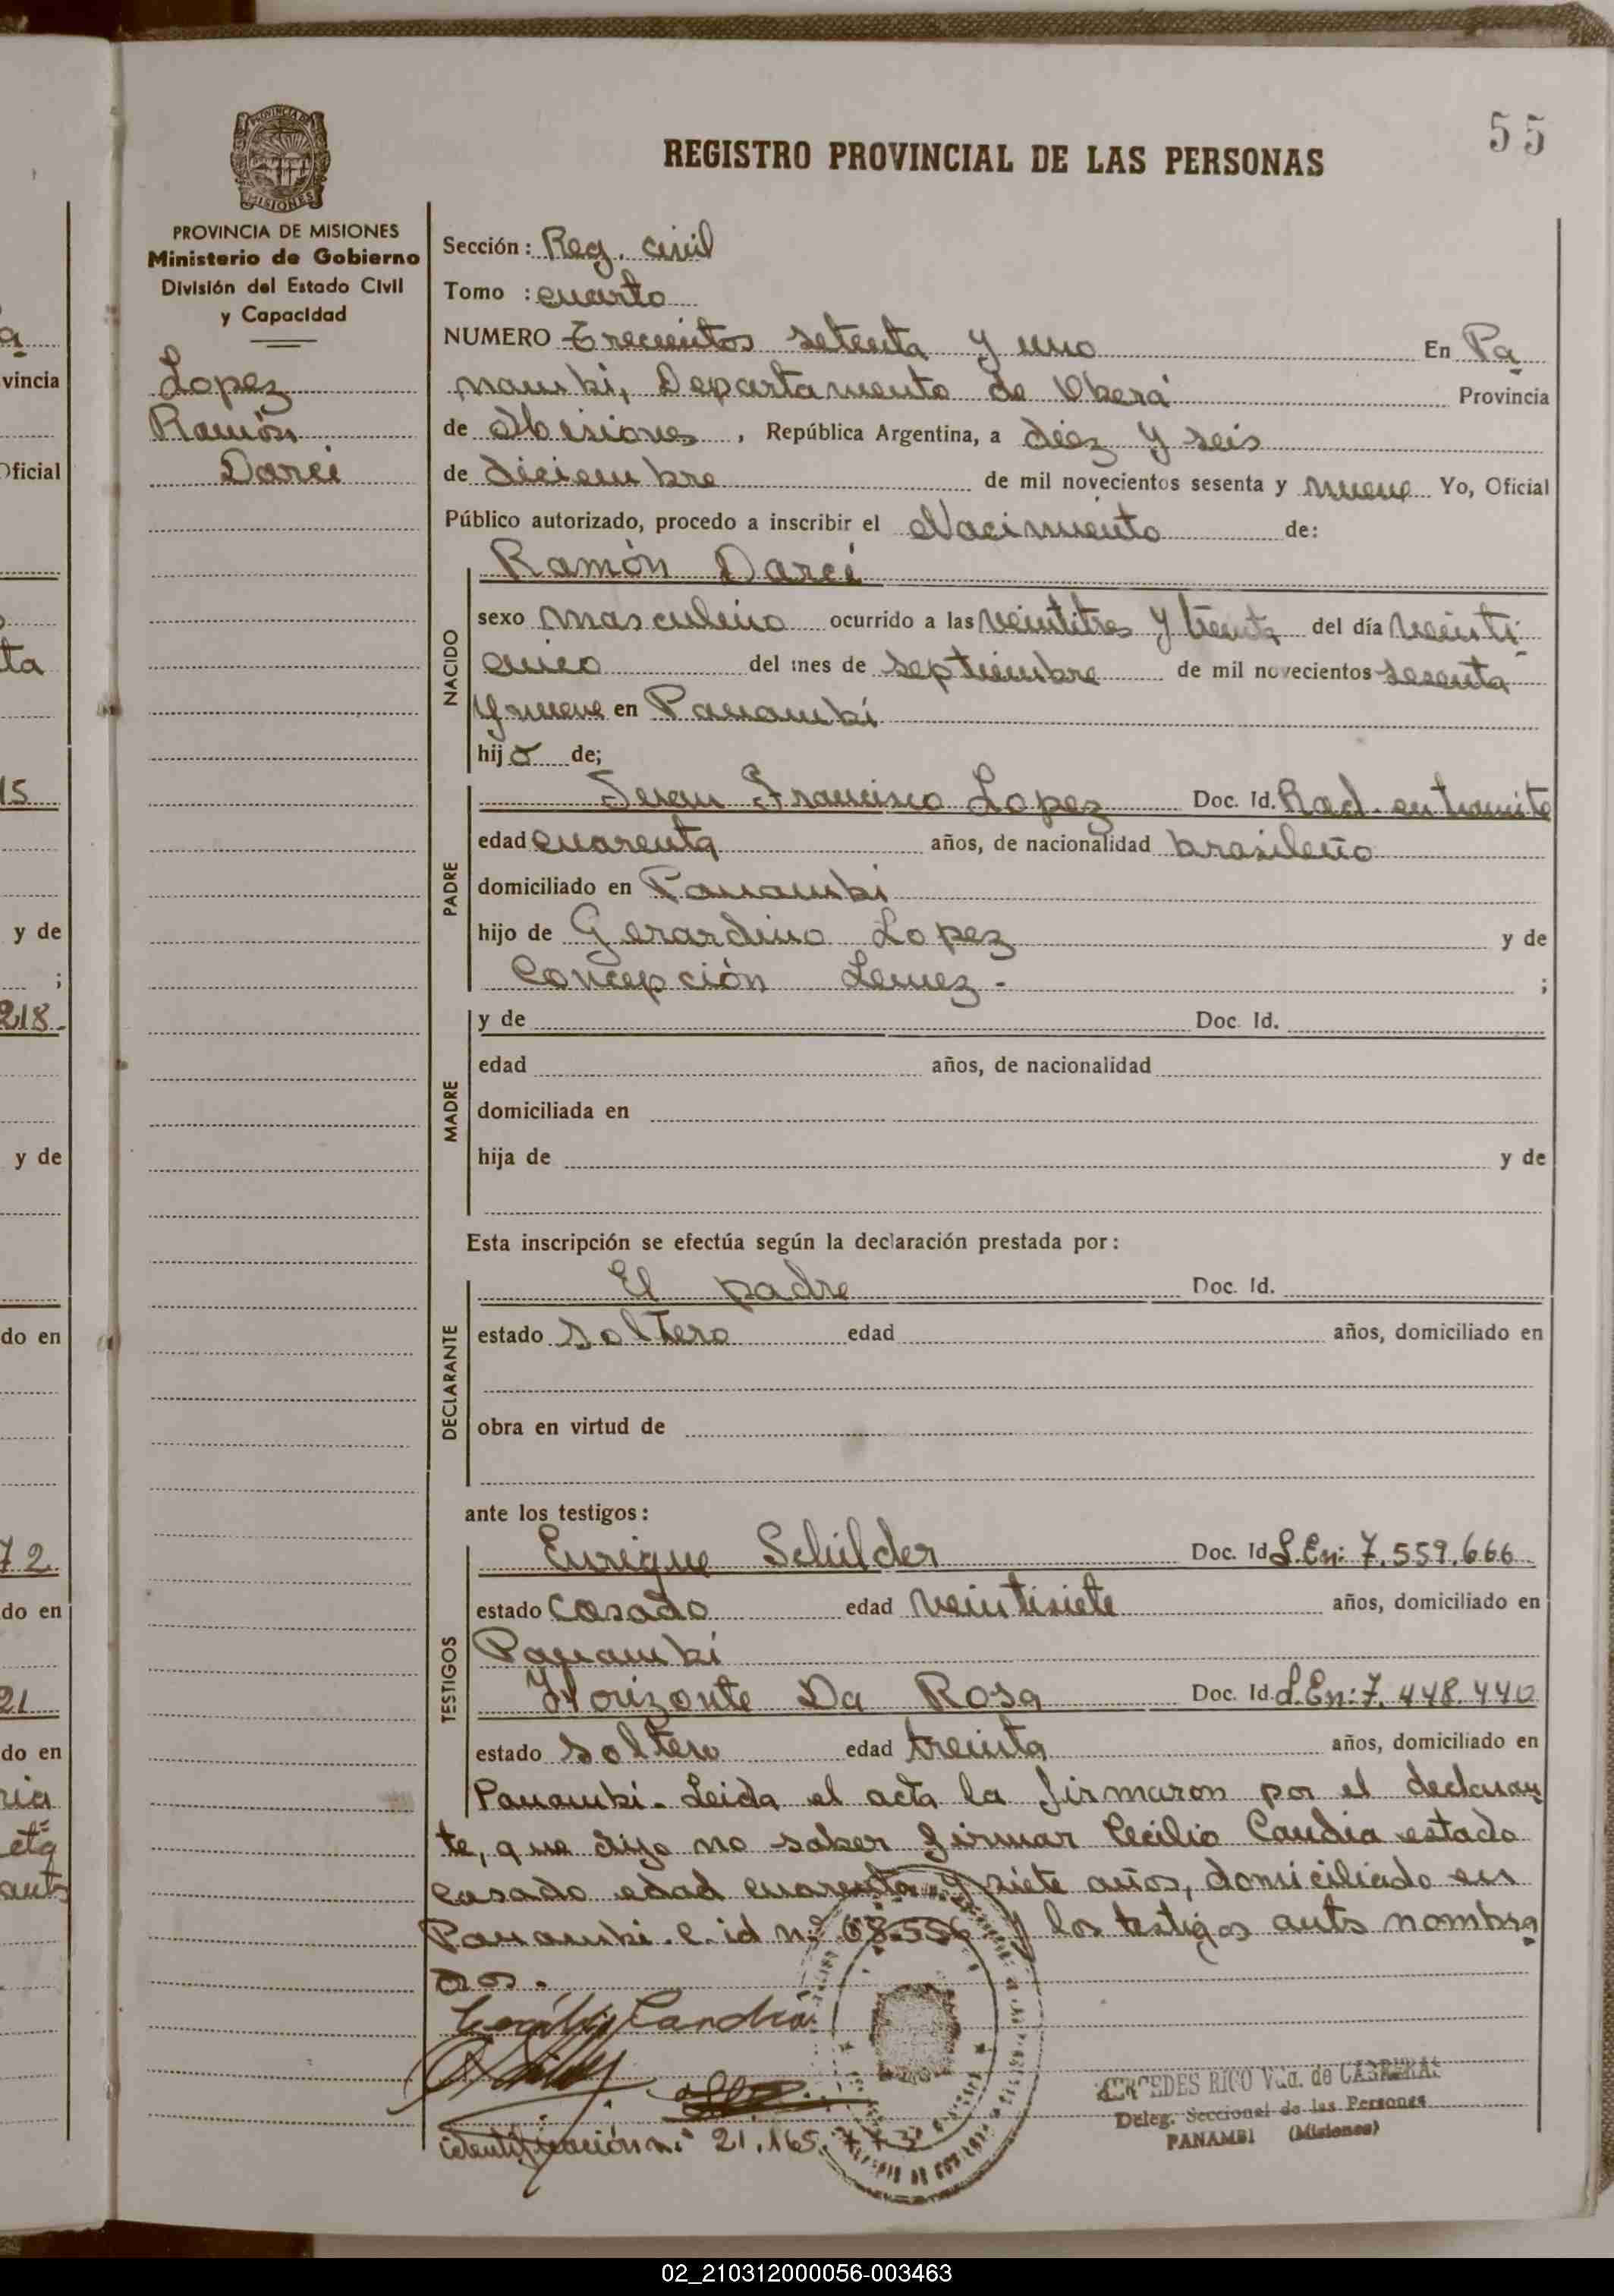 55
REGISTRO PROVINCIAL DE LAS PERSONAS
PROVINCIA DE MISIONES
Ministerio de Gobierno
División del Estado Civil
y Capacidad
Lopez
Ramón
Darci
Sección: Reg. civil
Tomo : cuarto
NUMERO Trecientos setenta y uno En Pa
nambi, Departamento de Oberá Provincia
de Misiones, República Argentina, a diez y seis
de diciembre de mil novecientos sesenta y nueve Yo, Oficial
Público autorizado, procedo a inscribir el Nacimiento de:
Ramón Darci
NACIDO
sexo masculino ocurrido a las veintitres y treinta del día veinti
cinco del mes de septiembre de mil novecientos sesenta
y nueve en Panambí
hijo de;
PADRE
Juan Francisco Lopez Doc. Id. Rad. en tramite
edad cuarenta años, de nacionalidad brasileño
domiciliado en Panambi
hijo de Gerardino Lopez y de
Concepción Lemez. ;
MADRE
y de Doc. Id.
edad años, de nacionalidad
domiciliada en
hija de y de
Esta inscripción se efectúa según la declaración prestada por:
DECLARANTE
El padre Doc. Id.
estado soltero edad años, domiciliado en
obra en virtud de
ante los testigos:
TESTIGOS
Enrique Schilder Doc. Id L.En: 7.559.666
estado casado edad veintisiete años, domiciliado en
Panambí
Horizonte Da Rosa Doc. Id. L.En: 7.448.440
estado soltero edad treinta años, domiciliado en
Panambi. Leida el acta la firmaron por el declaran
te, que dijo no saber firmar Cecilio Candia estado
casado edad cuarenta y siete años, domiciliado en
Panambi. c. id nº 68.556 y los testigos antes nombra
dos.
Candia
identificación n.° 21.165
MERCEDES RICO Vda. de CABRERA
Deleg. Seccional de las Personas
PANAMBI (Misiones)
vincia
Oficial
ta
15
y de
;
218.
y de
do en
72.
do en
21
do en
02_210312000056-003463